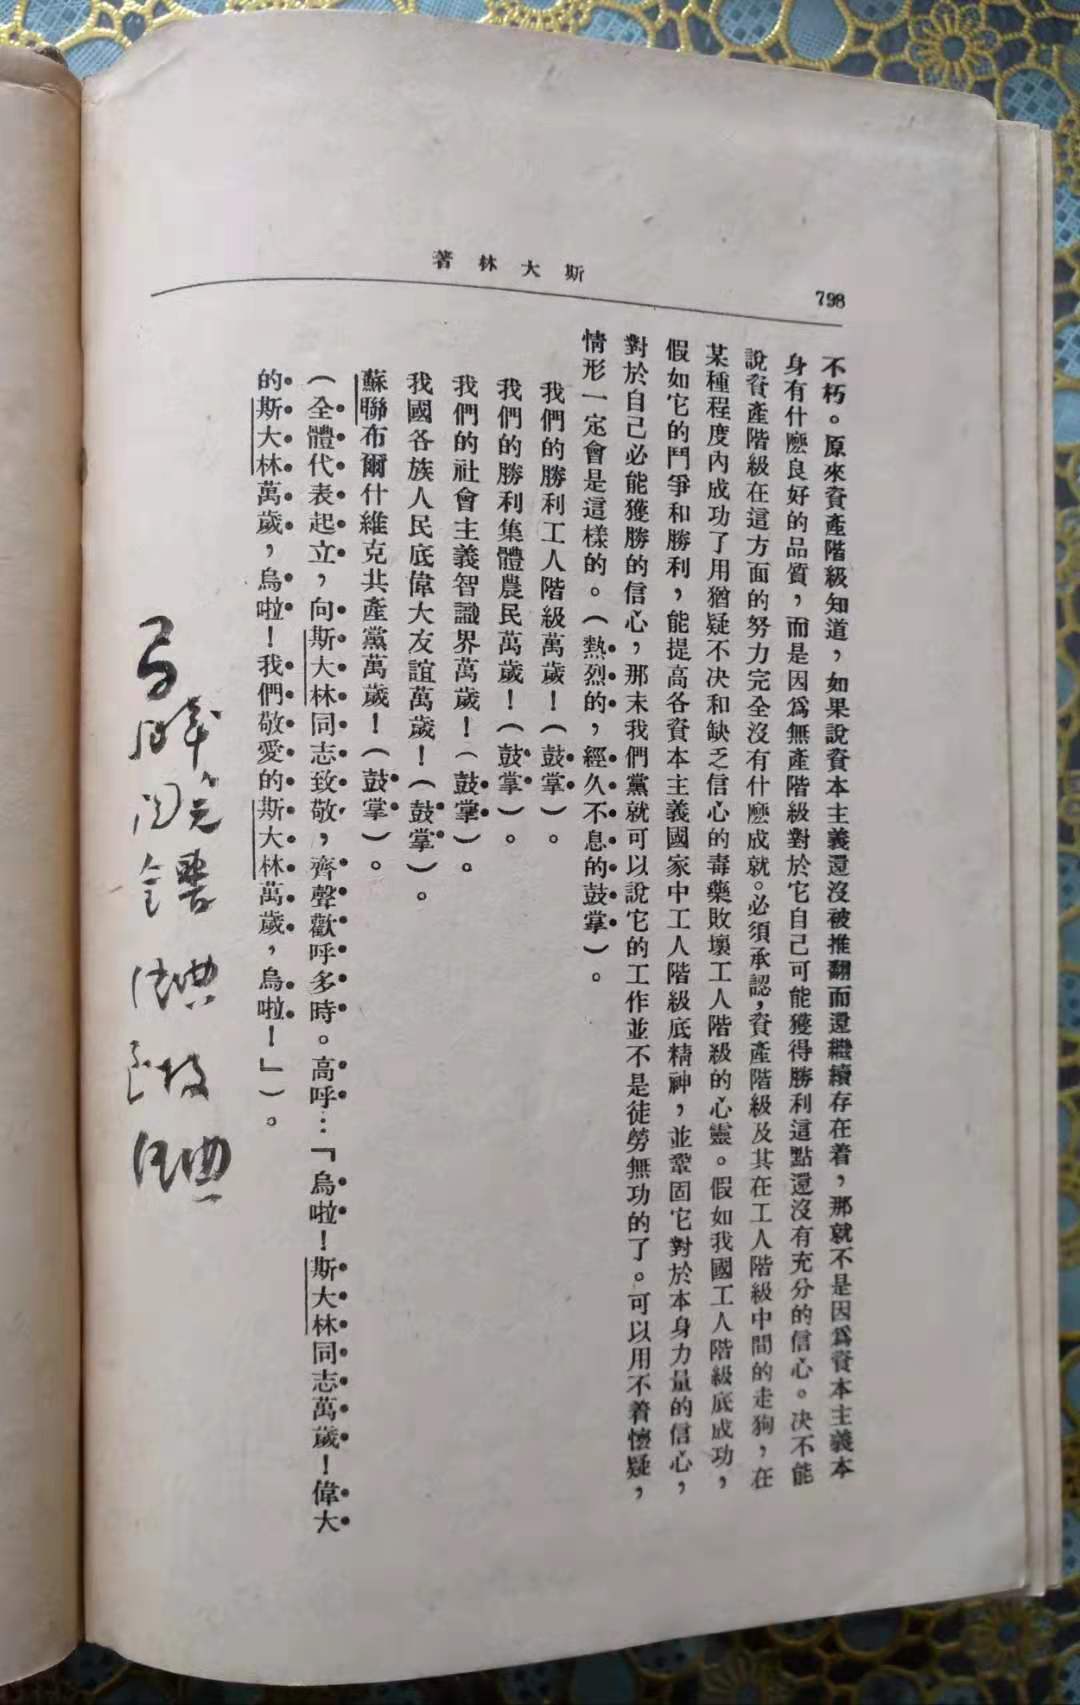 798
斯大林著
不朽。原來資產階級知道，如果說資本主義還沒被推翻而還繼續存在着，那就不是因爲資本主義本
身有什麽良好的品質，而是因爲無產階級對於它自己可能獲得勝利這點還沒有充分的信心。决不能
說資產階級在這方面的努力完全沒有什麽成就。必須承認，資產階級及其在工人階級中間的走狗，在
某種程度內成功了用猶疑不决和缺乏信心的毒藥敗壞工人階級的心靈。假如我國工人階級底成功，
假如它的鬥爭和勝利，能提高各資本主義國家中工人階級底精神，並鞏固它對於本身力量的信心，
對於自己必能獲勝的信心，那末我們黨就可以說它的工作並不是徒勞無功的了。可以用不着懷疑，
情形一定會是這樣的。（熱烈的，經久不息的鼓掌）。
我們的勝利工人階級萬歲！（鼓掌）。
我們的勝利集體農民萬歲！（鼓掌）。
我們的社會主義智識界萬歲！（鼓掌）。
我國各族人民底偉大友誼萬歲！（鼓掌）。
蘇聯布爾什維克共產黨萬歲！（鼓掌）。
（全體代表起立，向斯大林同志致敬，齊聲歡呼多時。高呼：「烏啦！斯大林同志萬歲！偉大
的斯大林萬歲，烏啦！我們敬愛的斯大林萬歲，烏啦！」）。